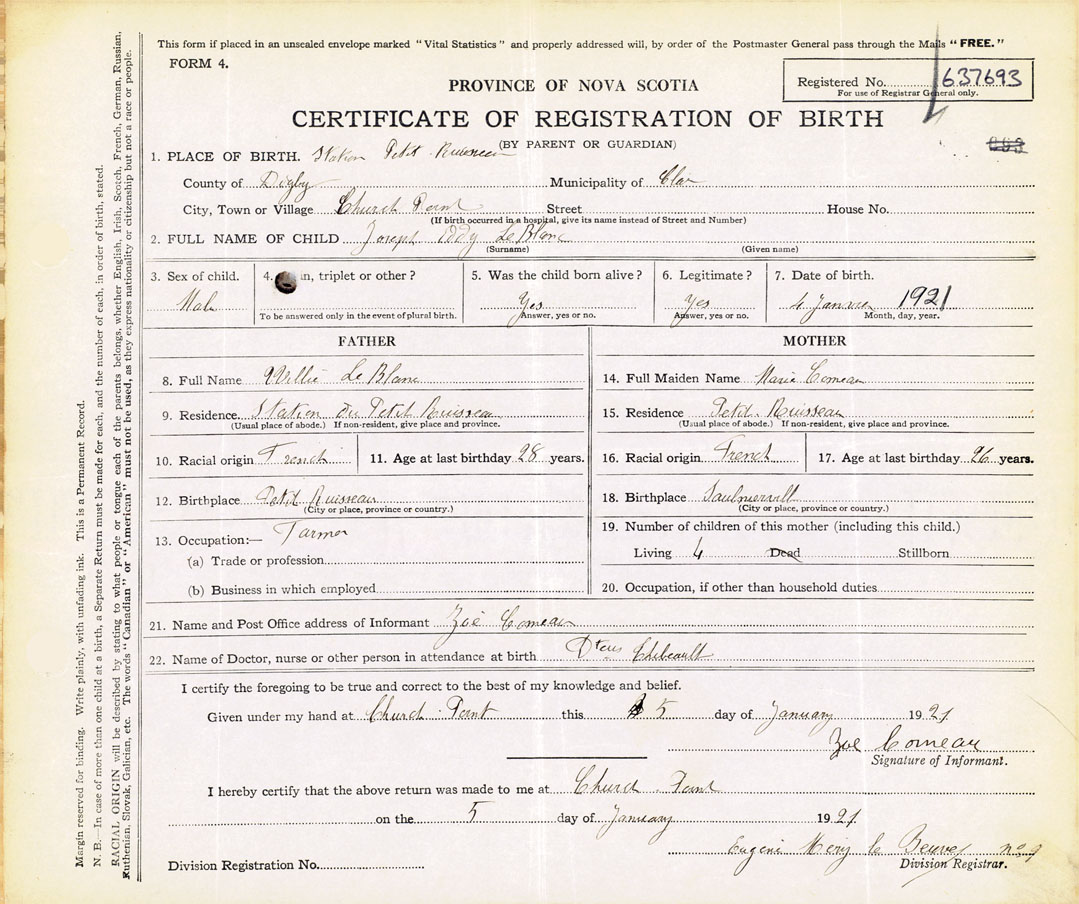 This form if placed in an unsealed envelope marked "Vital Statistics" and properly addressed will, by order of the Postmaster General pass through the Mails "FREE."
FORM 4.
Registered No. 637693
For use of Registrar General only.
PROVINCE OF NOVA SCOTIA
CERTIFICATE OF REGISTRATION OF BIRTH
(BY PARENT OR GUARDIAN)
1. PLACE OF BIRTH. Station Petit Ruisseau
County of Digby Municipality of Clare
City, Town or Village Church Point Street House No.
(If birth occurred in a hospital, give its name instead of Street and Number)
2. FULL NAME OF CHILD Joseph Eddy LeBlanc
(Surname) (Given name)
3. Sex of child. 4. in, triplet or other? 5. Was the child born alive? 6. Legitimate? 7. Date of birth.
Male Yes Yes 4 Janvier 1921
To be answered only in the event of plural birth. Answer, yes or no. Answer, yes or no. Month, day, year.
FATHER
8. Full Name Willie LeBlanc
9. Residence. Station du Petit Ruisseau
(Usual place of abode.) If non-resident, give place and province.
10. Racial origin French 11. Age at last birthday 28 years.
12. Birthplace Petit Ruisseau
(City or place, province or country.)
13. Occupation:— Farmer
(a) Trade or profession
(b) Business in which employed
MOTHER
14. Full Maiden Name Marie Comeau
15. Residence Petit Ruisseau
(Usual place of abode.) If non-resident, give place and province.
16. Racial origin French 17. Age at last birthday 26 years.
18. Birthplace
(City or place, province or country.)
19. Number of children of this mother (including this child.)
Living 4 Dead Stillborn
20. Occupation, if other than household duties
21. Name and Post Office address of Informant Zoé Comeau
22. Name of Doctor, nurse or other person in attendance at birth
I certify the foregoing to be true and correct to the best of my knowledge and belief.
Given under my hand at Church Point this 5 day of January 1921
Zoé Comeau
Signature of Informant.
I hereby certify that the above return was made to me at Church Point
on the 5 day of January 1921
Eugene
Division Registration No. Division Registrar.
Margin reserved for binding. Write plainly, with unfading ink. This is a Permanent Record.
N. B.—In case of more than one child at a birth, a Separate Return must be made for each, and the number of each, in order of birth, stated.
RACIAL ORIGIN will be described by stating to what people or tongue each of the parents belongs, whether English, Irish, Scotch, French, German, Russian,
Ruthenian, Slovak, Galician, etc. The words "Canadian" or "American" must not be used, as they express nationality or citizenship but not a race or people.